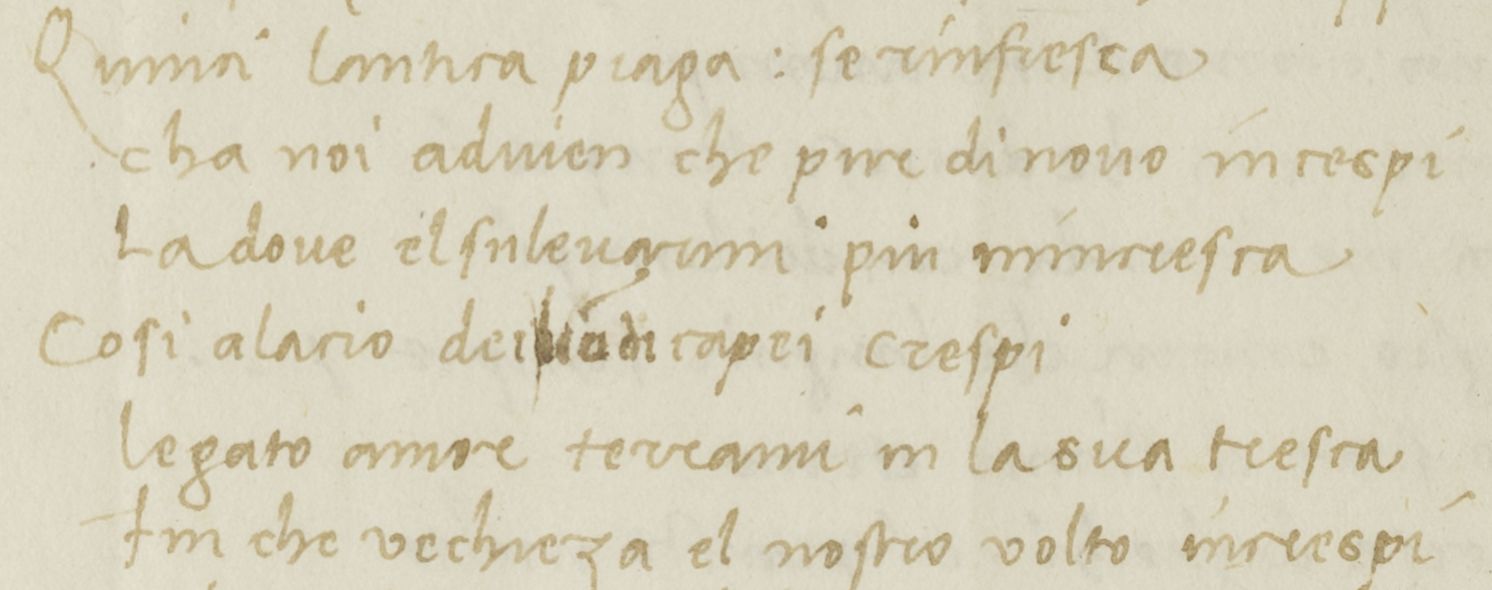 Quinci lantica piaga : se rinfresca
cha noi advien che pure di novo incespi
La dove el sulevarmi piu mincresca
Cosi alacio dei biondi capei crespi
legato amore terrami in la sua tresca
Fin che vechieza el nostro volto increspi